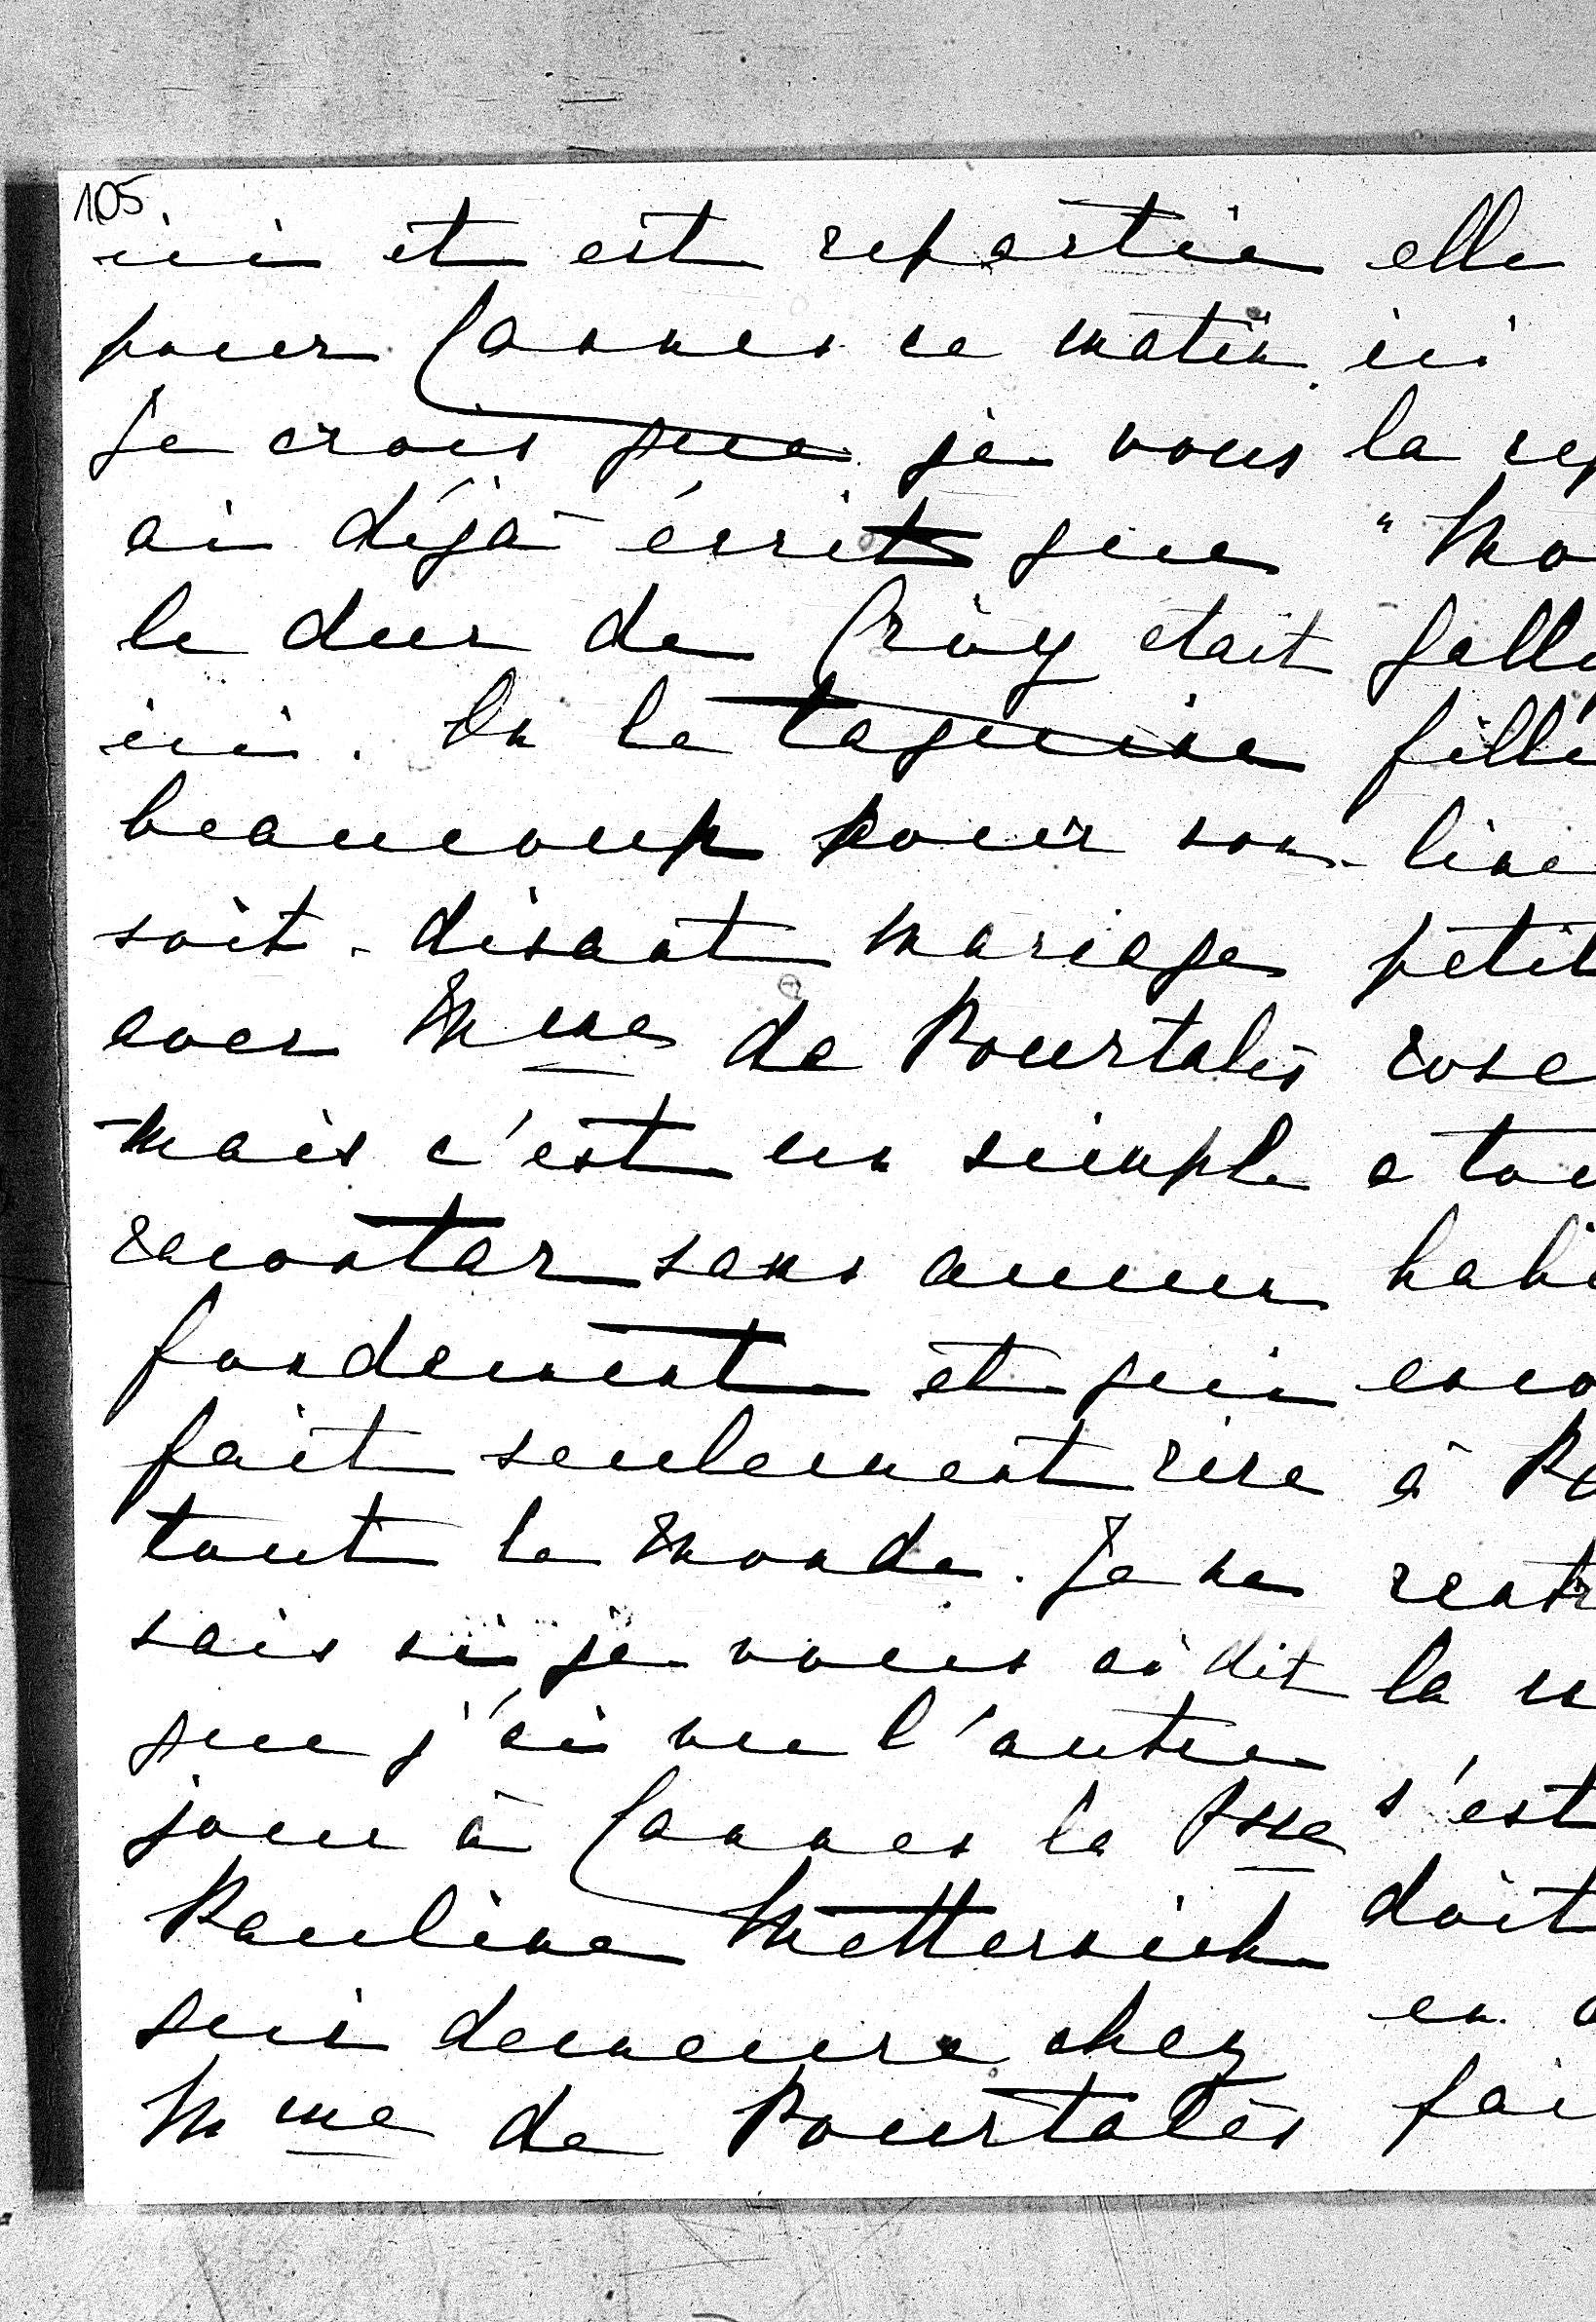 105
ici et est repartie
pour Cannes ce matin.
Je crois que je vous
ai déjà écrit que
le duc de Croy était
ici. On le taquine
beaucoup pour son
soit-disant mariage
avec Mme de Pourtalès
mais c'est un simple
racontar sans aucun
fondement et qui
fait seulement rire
tout le monde. Je ne
sais si je vous ai dit
que j'ai vu l'autre
jour à Cannes la Psse
Pauline Metternich
qui demeure chez
Mme de Pourtalès
elle
ici
la rep
" Mo
fall
fille
line
petit
rose
a tou
habi
enco
à Pa
rentr
la
s'est
doit
en
fai